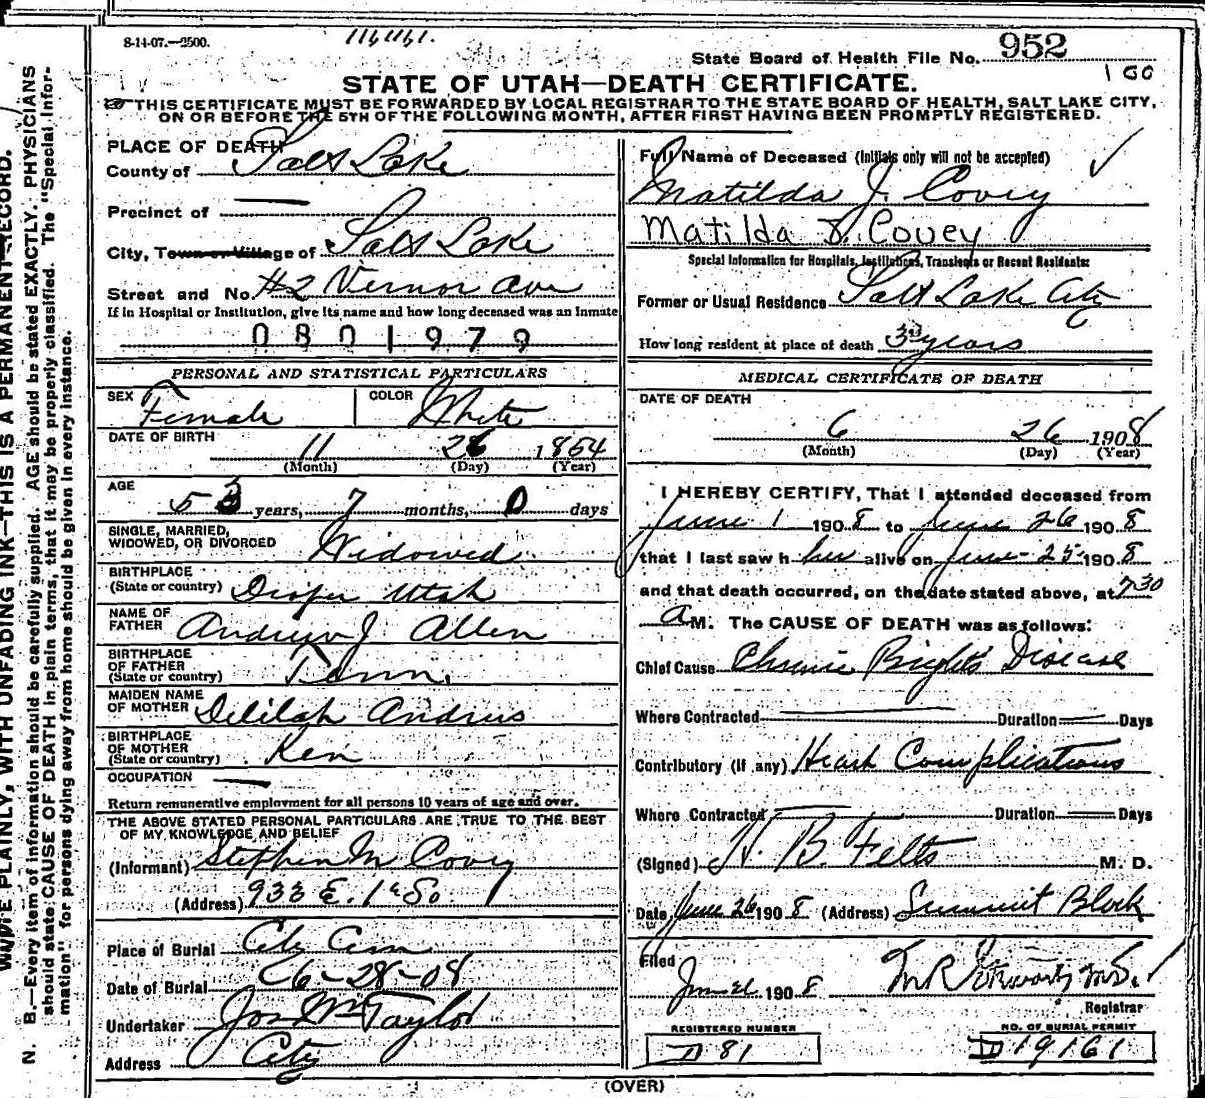 8-14-07.—2500.
State Board of Health File No. 952
STATE OF UTAH—DEATH CERTIFICATE.
100
THIS CERTIFICATE MUST BE FORWARDED BY LOCAL REGISTRAR TO THE STATE BOARD OF HEALTH, SALT LAKE CITY,
ON OR BEFORE THE 5TH OF THE FOLLOWING MONTH, AFTER FIRST HAVING BEEN PROMPTLY REGISTERED.
PLACE OF DEATH
County of Salt Lake
Precinct of —
City, Town or Village of Salt Lake
Street and No. #2 Vernon Ave
If in Hospital or Institution, give its name and how long deceased was an Inmate
0801979
PERSONAL AND STATISTICAL PARTICULARS
SEX Female COLOR White
DATE OF BIRTH 11 26 1854
(Month) (Day) (Year)
AGE
53 years, 7 months, 0 days
SINGLE, MARRIED,
WIDOWED, OR DIVORCED Widowed
BIRTHPLACE
(State or country) Draper Utah
NAME OF
FATHER Andrew J Allen
BIRTHPLACE
OF FATHER
(State or country) Tenn.
MAIDEN NAME
OF MOTHER Delilah Andrus
BIRTHPLACE
OF MOTHER
(State or country) Ken
OCCUPATION —
Return remunerative employment for all persons 10 years of age and over.
THE ABOVE STATED PERSONAL PARTICULARS ARE TRUE TO THE BEST
OF MY KNOWLEDGE AND BELIEF
(Informant) Stephen M Covey
(Address) 933 E. 1st So.
Place of Burial City Cem
Date of Burial 6-28-08
Undertaker Jos Wm Taylor
Address City
Full Name of Deceased (Initials only will not be accepted)
Matilda J. Covey
Matilda J. Covey
Special Information for Hospitals, Institutions, Transients or Recent Residents:
Former or Usual Residence Salt Lake City
How long resident at place of death years
MEDICAL CERTIFICATE OF DEATH
DATE OF DEATH
6 26 1908
(Month) (Day) (Year)
I HEREBY CERTIFY, That I attended deceased from
June 1 1908 to June 26 1908
that I last saw her alive on June 25 1908
and that death occurred, on the date stated above, at 7 30
A M. The CAUSE OF DEATH was as follows:
Chief Cause Chronic Brights Disease
Where Contracted — Duration — Days
Contributory (if any) Heart Complications
Where Contracted — Duration — Days
(Signed) B. Felts M. D.
Date June 26 1908 (Address) Summit Block
Filed
1908
Registrar
REGISTERED NUMBER
D 81
NO. OF BURIAL PERMIT
D 19161
(OVER)
N. B.—Every item of information should be carefully supplied. AGE should be stated EXACTLY. PHYSICIANS
should state CAUSE OF DEATH in plain terms, that it may be properly classified. The "Special Infor-
mation" for persons dying away from home should be given in every instance.
WRITE PLAINLY, WITH UNFADING INK—THIS IS A PERMANENT RECORD.